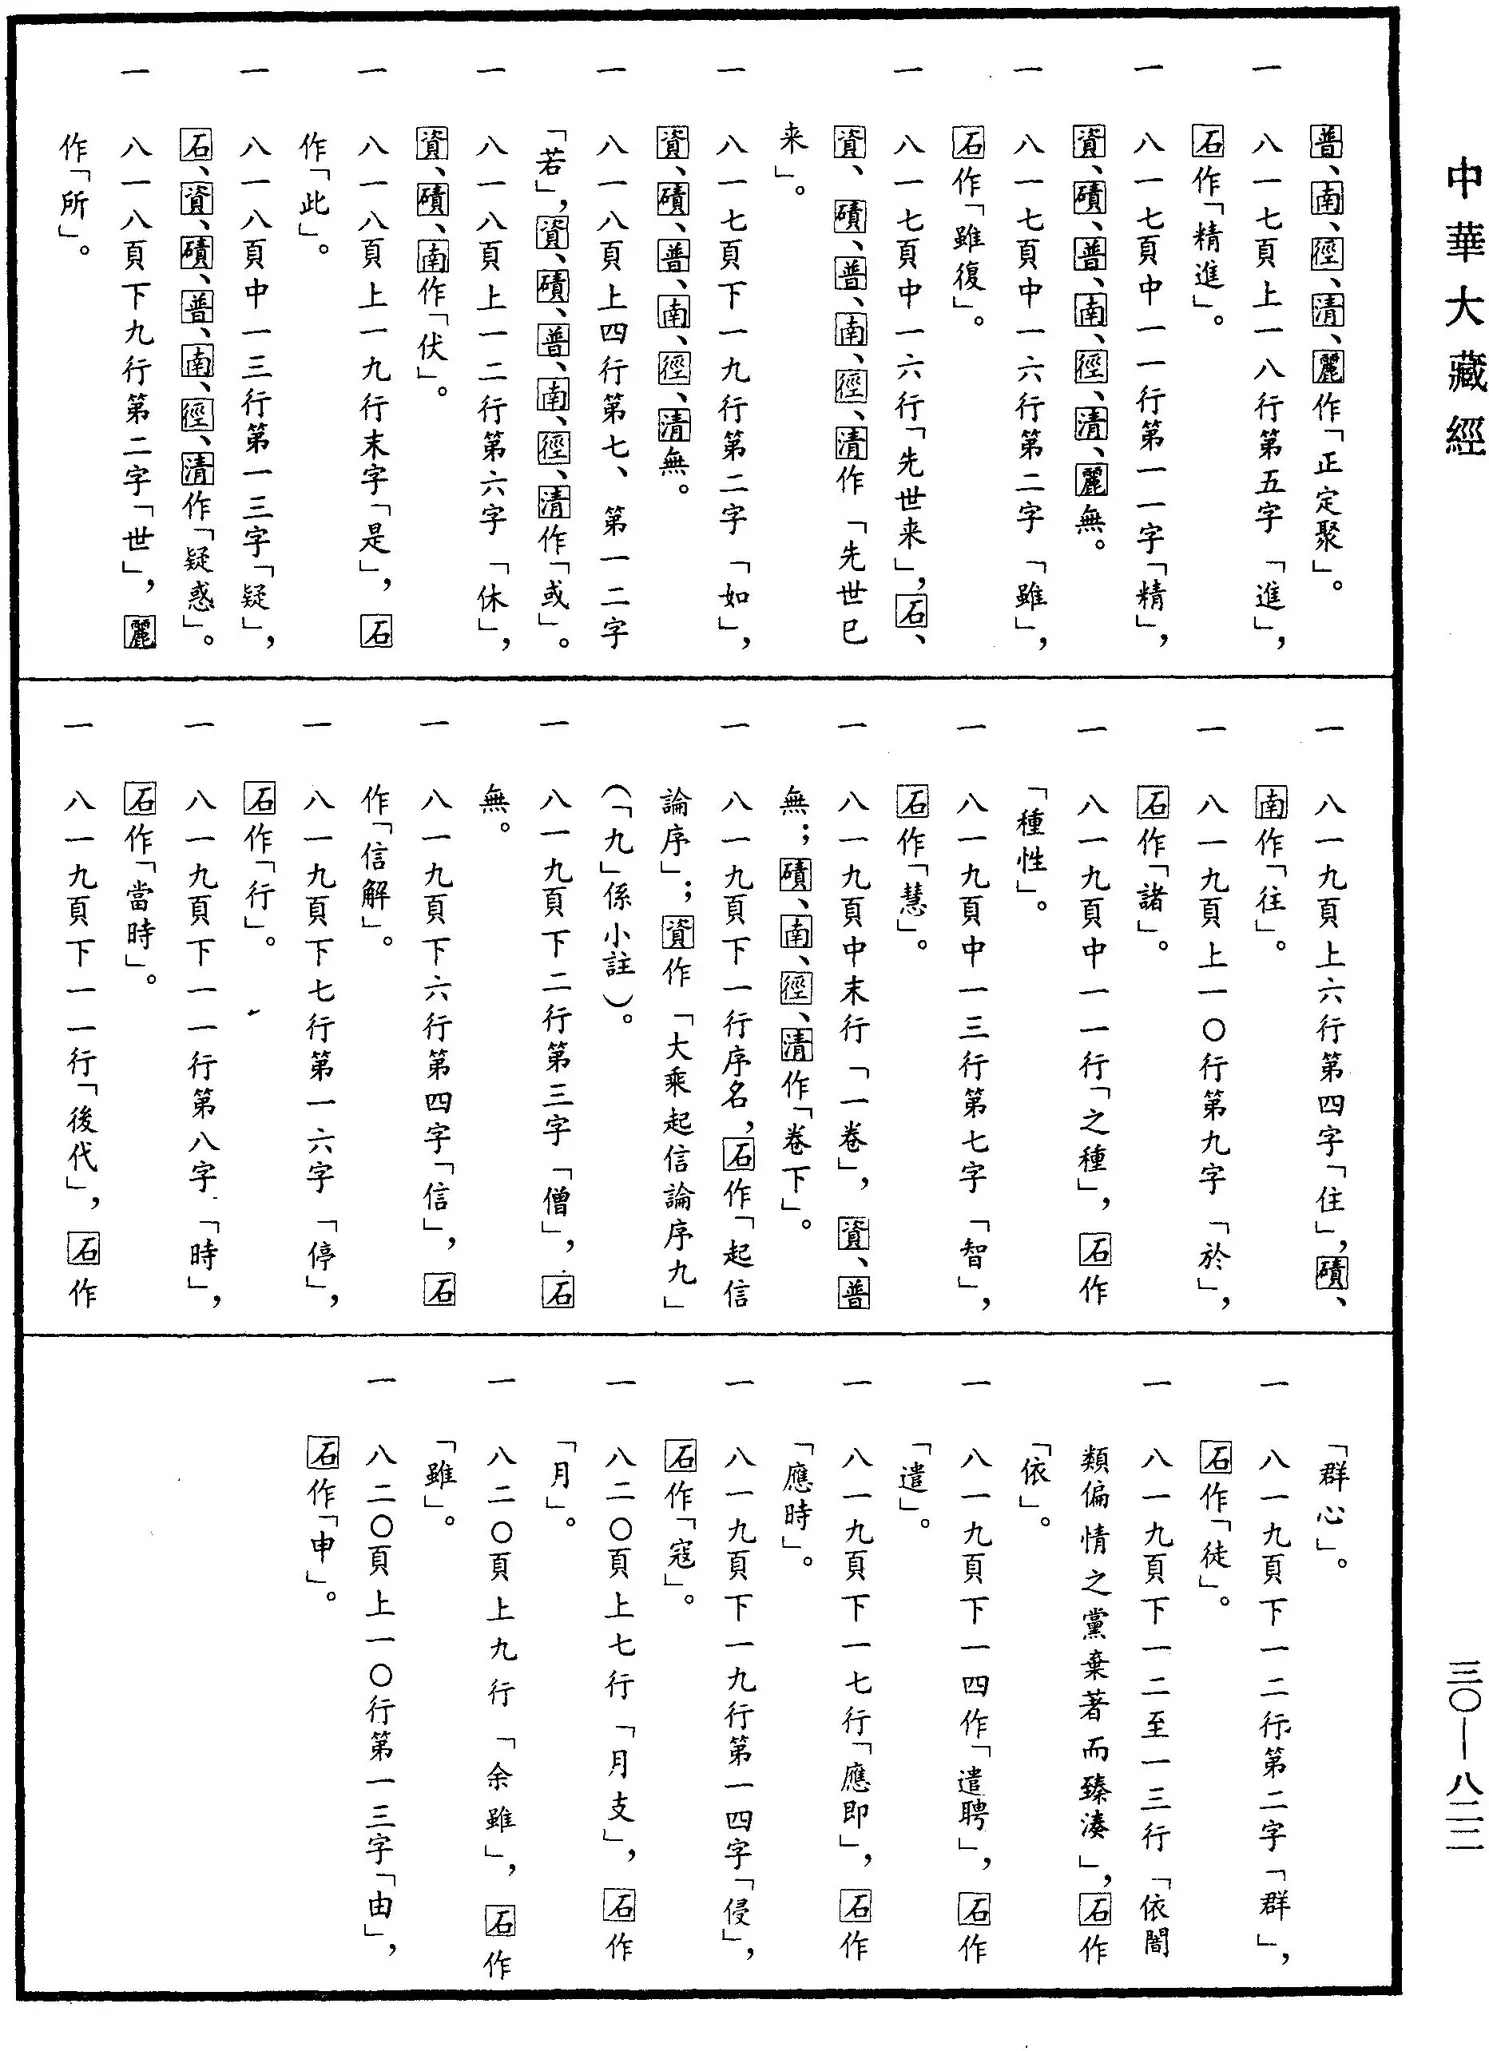 中華大藏經
普、南、徑、清、麗作「正定聚」。
一 八一七頁上一八行第五字「進」，
石作「精進」。
一 八一七頁中一一行第一一字「精」，
資、磧、普、南、徑、清、麗無。
一 八一七頁中一六行第二字「雖」，
石作「雖復」。
一 八一七頁中一六行「先世来」，石、
資、磧、普、南、徑、清作「先世已
来」。
一 八一七頁下一九行第二字「如」，
資、磧、普、南、徑、清無。
一 八一八頁上四行第七、第一二字
「若」，資、磧、普、南、徑、清作「或」。
一 八一八頁上一二行第六字「休」，
資、磧、南作「伏」。
一 八一八頁上一九行末字「是」，石
作「此」。
一 八一八頁中一三行第一三字「疑」，
石、資、磧、普、南、徑、清作「疑惑」。
一 八一八頁下九行第二字「世」，麗
作「所」。
一 八一九頁上六行第四字「住」，磧、
南作「往」。
一 八一九頁上一〇行第九字「於」，
石作「諸」。
一 八一九頁中一一行「之種」，石作
「種性」。
一 八一九頁中一三行第七字「智」，
石作「慧」。
一 八一九頁中末行「一卷」，資、普
無；磧、南、徑、清作「卷下」。
一 八一九頁下一行序名，石作「起信
論序」；資作「大乘起信論序九」
（「九」係小註）。
一 八一九頁下二行第三字「僧」，石
無。
一 八一九頁下六行第四字「信」，石
作「信解」。
一 八一九頁下七行第一六字「停」，
石作「行」。
一 八一九頁下一一行第八字「時」，
石作「當時」。
一 八一九頁下一一行「後代」，石作
「群心」。
一 八一九頁下一二行第二字「群」，
石作「徒」。
一 八一九頁下一二至一三行「依闇
類偏情之黨棄著而臻湊」，石作
「依」。
一 八一九頁下一四作「遣聘」，石作
「遣」。
一 八一九頁下一七行「應即」，石作
「應時」。
一 八一九頁下一九行第一四字「侵」，
石作「寇」。
一 八二〇頁上七行「月支」，石作
「月」。
一 八二〇頁上九行「余雖」，石作
「雖」。
一 八二〇頁上一〇行第一三字「由」，
石作「申」。
三〇—八二二